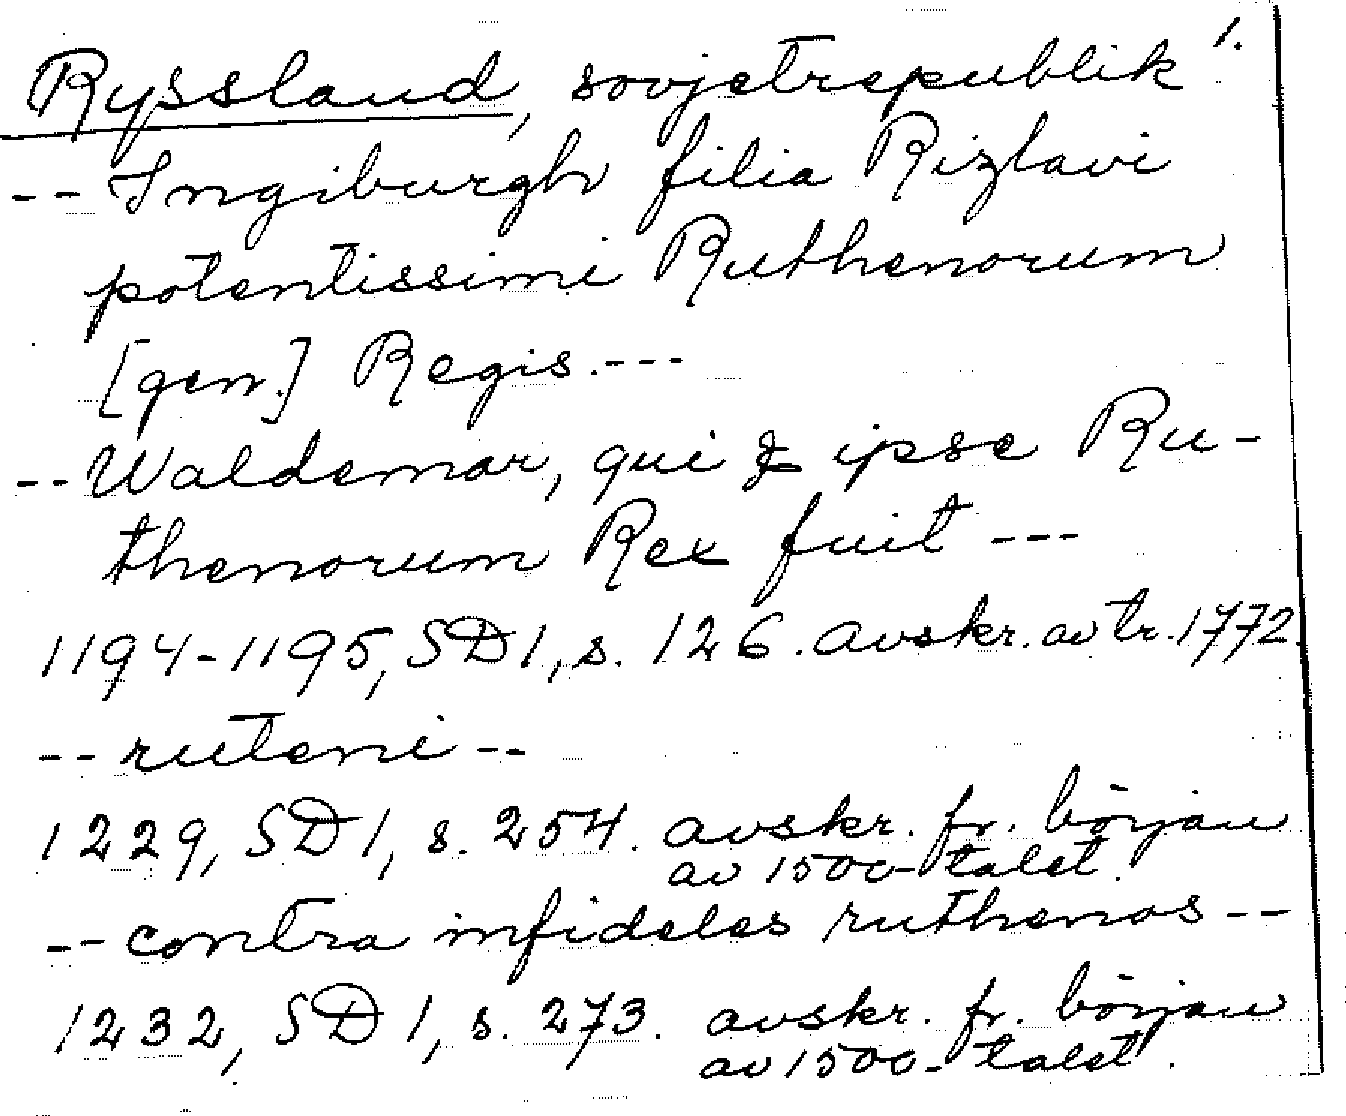 1.
Ryssland, sovjetrepublik
-- Ingiburgh filia Rizlavi
potentissimi Ruthenorum
[gen.] Regis. ---
-- Waldemar, qui & ipse Ru-
thenorum Rex fuit ---
1194-1195, SD 1, s. 126. avskr. av tr. 1772.
-- ruteni --
1229, SD 1, s. 254. avskr. fr. början
av 1500-talet.
-- contra infideles ruthenos --
1232, SD 1, s. 273. avskr. fr. början
av 1500-talet.